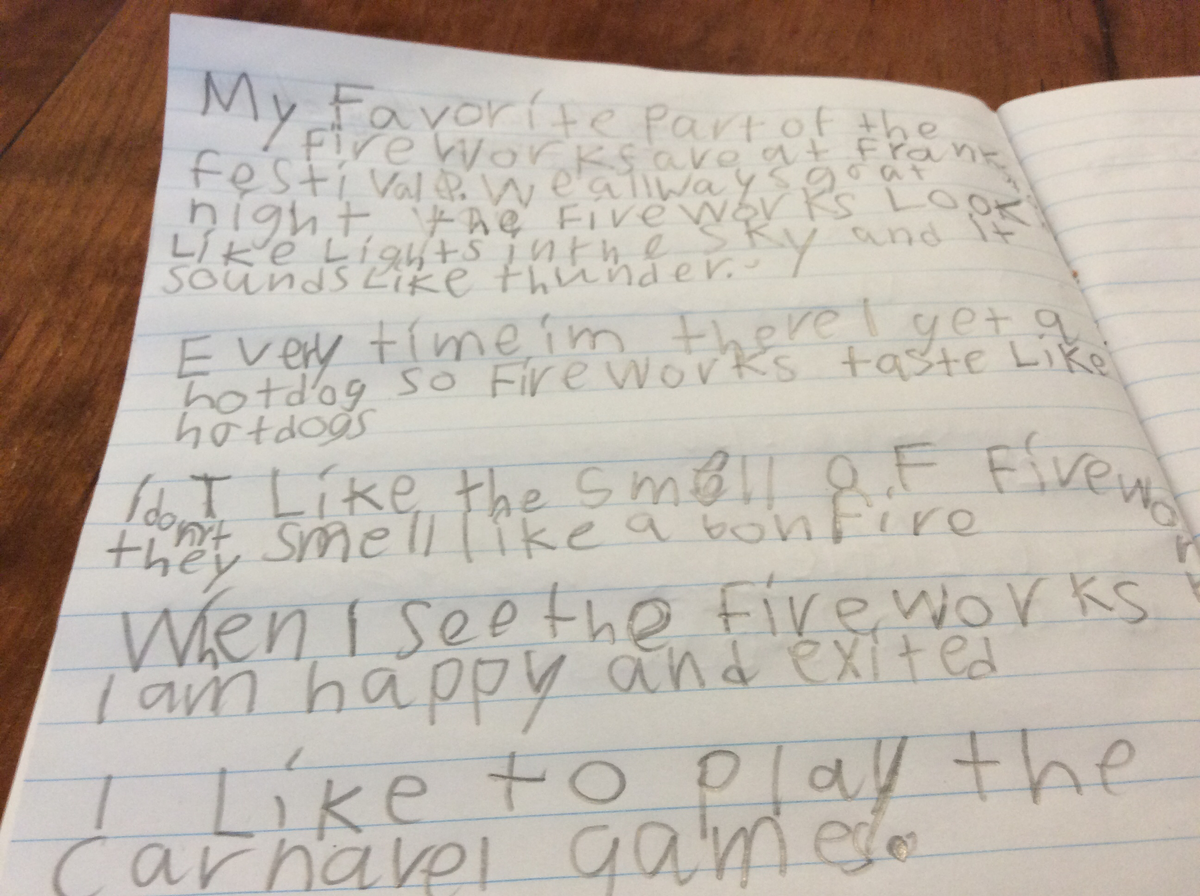 My Favorite Part of the
Fireworks are at Frank
festival. We allways go at
night, the Fireworks Look
Like Lights in the sky and it
sounds Like thunder.
Every time im there I get a
hotdog so Fireworks taste Like
hotdogs
I don't Like the smell of Firewo
they smell like a bonfire
When I see the fireworks
I am happy and exited
I Like to play the
Carnavel games.